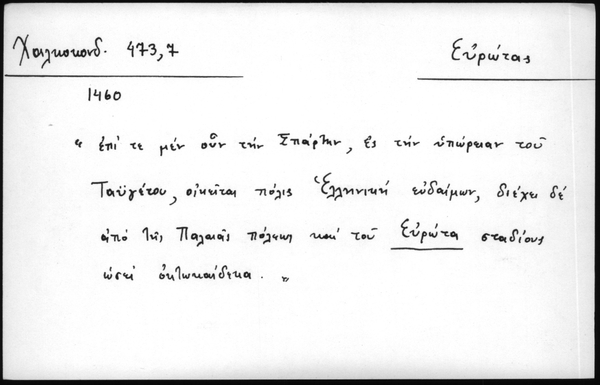 Χαλκοκονδ. 473,7
Εὐρώτας
1460
" ἐπί τε μέν οὖν τήν Σπάρτην, ἐς τήν ὑπώρειαν τοῦ
Ταϋγέτου, οἰκεῖται πόλις Ἑλληνική εὐδαίμων, διέχει δέ
ἀπό τῆς Παλαιᾶς πόλεως καί τοῦ Εὐρώτα σταδίους
ὡσεί ὀκτωκαίδεκα. "